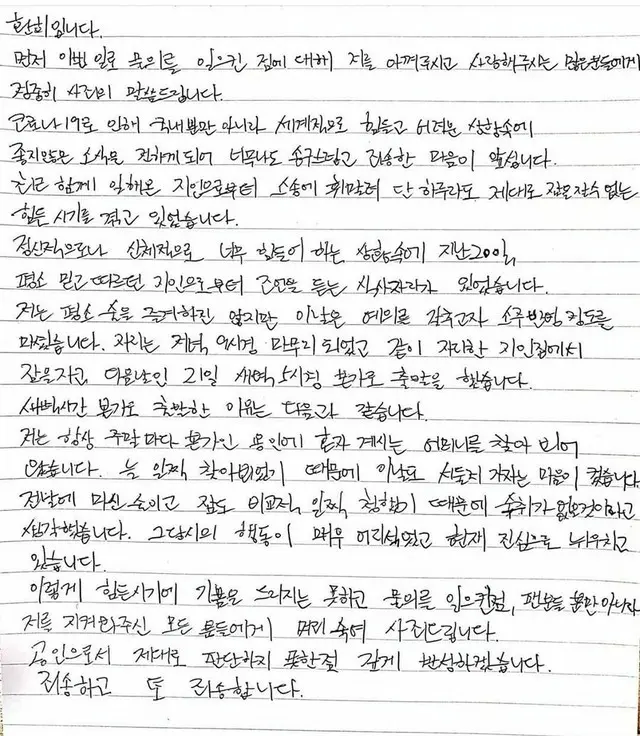 환희입니다.
먼저 이번 일로 물의를 일으킨 점에 대해 저를 아껴주시고 사랑해주시는 많은분들에게
정중히 사과의 말씀드립니다.
코로나19로 인해 국내뿐만 아니라 세계적으로 힘들고 어려운 상황속에
좋지않은 소식을 전하게 되어 너무나도 송구스럽고 죄송한 마음이 앞섭니다.
최근 함께 일해온 지인으로부터 소송에 휘말려 단 하루라도 제대로 잠을 잘수 없는
힘든 시기를 겪고 있었습니다.
정신적으로나 신체적으로 너무 힘들어 하는 상황속에 지난 20일,
평소 믿고 따르던 지인으로부터 조언을 듣는 식사자리가 있었습니다.
저는 평소 술을 즐겨하진 않지만 이날은 예의를 갖추고자 소주 반병 정도를
마셨습니다. 자리는 저녁 9시경 마무리 되었고 같이 자리한 지인집에서
잠을자고, 다음날인 21일 새벽 5시경 본가로 출발을 했습니다.
새벽시간 본가로 출발한 이유는 다음과 같습니다.
저는 항상 주말마다 본가인 용인에 혼자 계시는 어머니를 찾아 뵈어
왔습니다. 늘 일찍 찾아뵈었기 때문에 이날도 서둘러 가자는 마음이 컸습니다
전날에 마신 술이고 잠도 비교적 일찍 청했기 때문에 숙취가 없을것이라고
생각했습니다. 그당시의 행동이 매우 어리석었고 현재 진심으로 뉘우치고
있습니다.
이렇게 힘든시기에 기쁨을 드리지는 못하고 물의를 일으킨점, 팬분들 뿐만아니라
저를 지켜봐주신 모든 분들에게 머리 숙여 사죄드립니다.
공인으로서 제대로 판단하지 못한걸 깊게 반성하겠습니다.
죄송하고 또 죄송합니다.